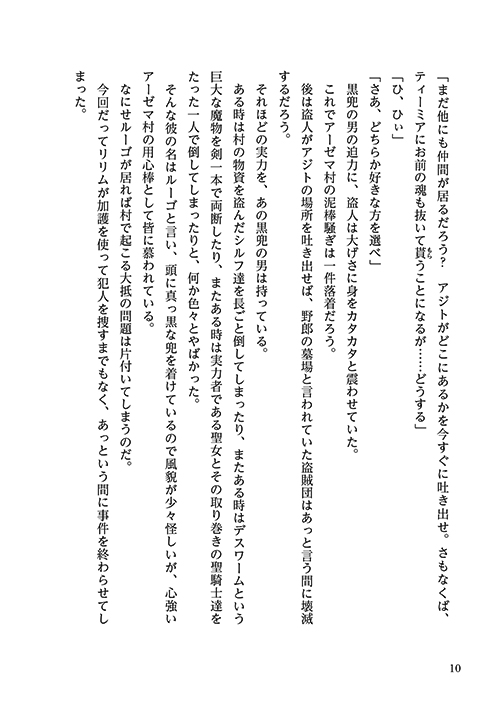 「まだ他にも仲間が居るだろう？　アジトがどこにあるかを今すぐに吐き出せ。さもなくば、
ティーミアにお前の魂も抜いて貰うことになるが……どうする」
「ひ、ひぃ」
「さあ、どちらか好きな方を選べ」
黒兜の男の迫力に、盗人は大げさに身をカタカタと震わせていた。
これでアーゼマ村の泥棒騒ぎは一件落着だろう。
後は盗人がアジトの場所を吐き出せば、野郎の墓場と言われていた盗賊団はあっと言う間に壊滅
するだろう。
それほどの実力を、あの黒兜の男は持っている。
ある時は村の物資を盗んだシルフ達を長ごと倒してしまったり、またある時はデスワームという
巨大な魔物を剣一本で両断したり、またある時は実力者である聖女とその取り巻きの聖騎士達を
たった一人で倒してしまったりと、何か色々とやばかった。
そんな彼の名はルーゴと言い、頭に真っ黒な兜を着けているので風貌が少々怪しいが、心強い
アーゼマ村の用心棒として皆に慕われている。
なにせルーゴが居れば村で起こる大抵の問題は片付いてしまうのだ。
今回だってリリムが加護を使って犯人を捜すまでもなく、あっという間に事件を終わらせてし
まった。
もら
10